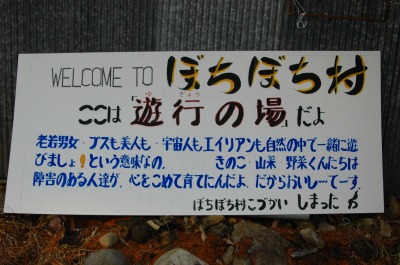 WELCOME TO ぼちぼち村
ここは「遊行の場」だよ
ゆ ぎょう
老若男女・ブスも美人も・宇宙人もエイリアンも自然の中で一緒に遊
びましょ!という意味なの。 きのこ・山菜・野菜くんたちは
障害のある人達が、心をこめて育てたんだよ。だからおいし〜で〜す。
ぼちぼち村こづかい しまった